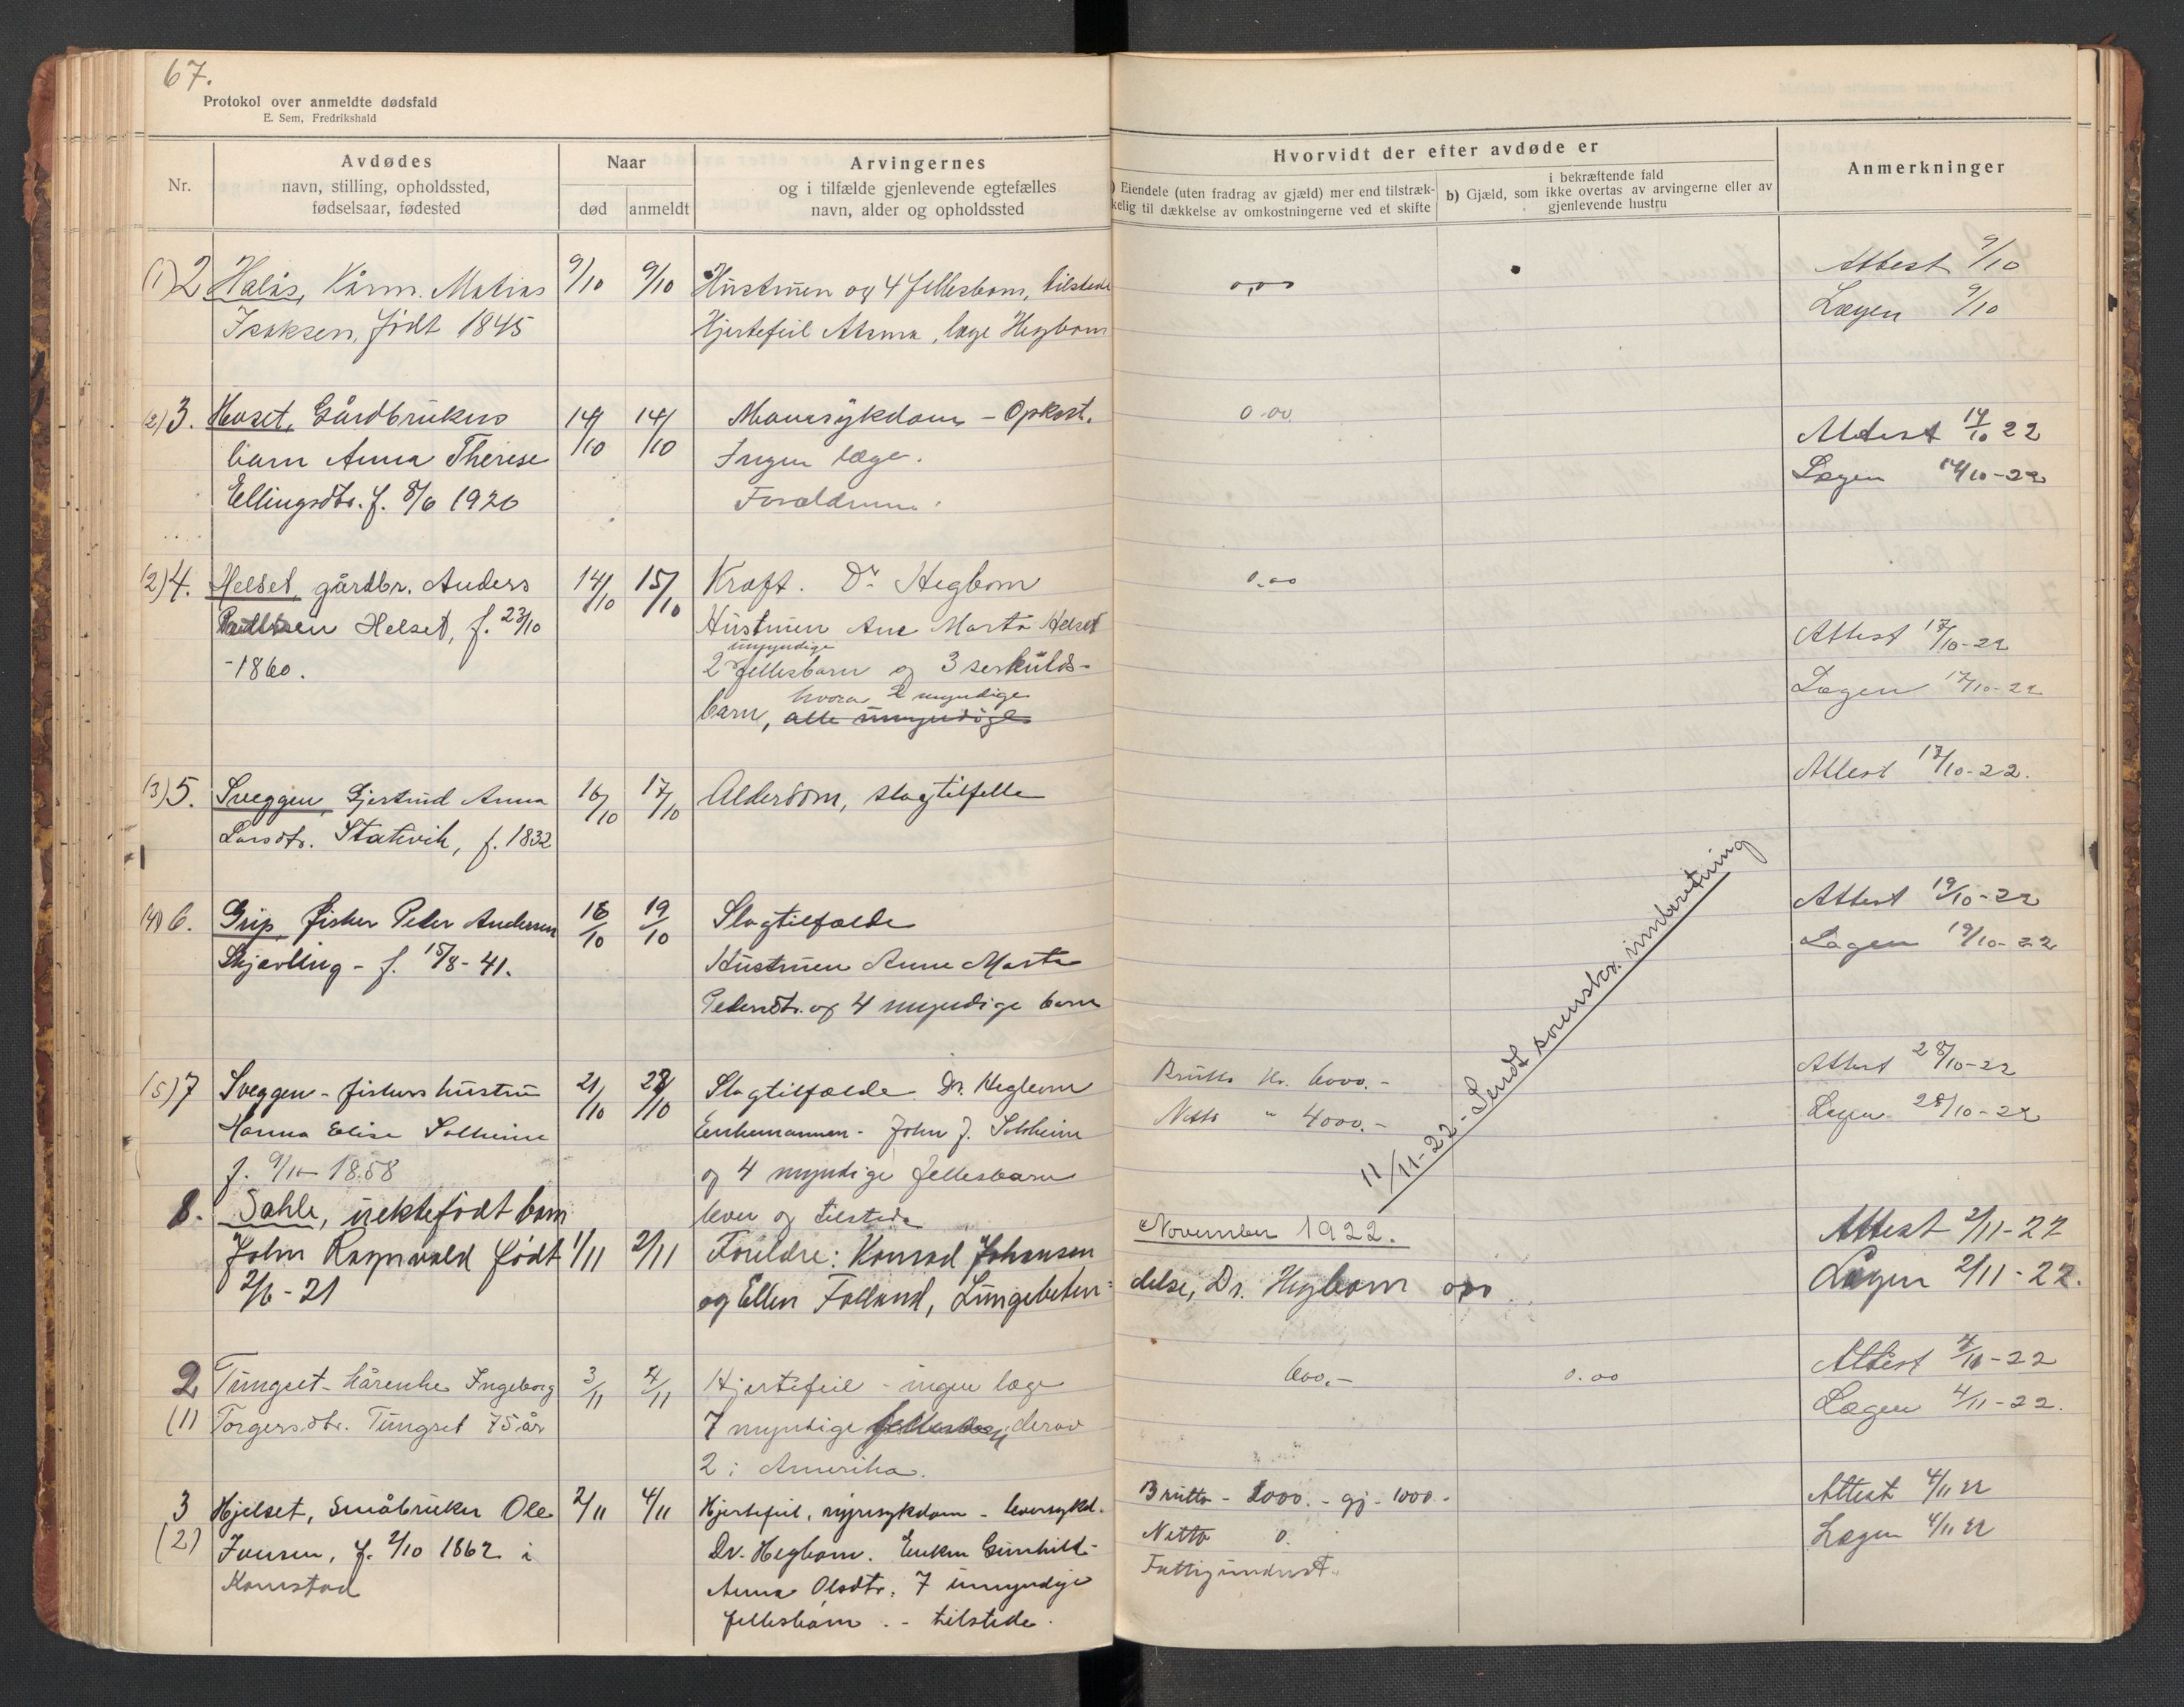 67.
Protokol over anmeldte dødsfald
E. Sem, Fredrikshald
Nr.
Avdødes
navn, stilling, opholdssted,
fødselsaar, fødested
Naar
død
anmeldt
Arvingernes
og i tilfælde gjenlevende egtefælles
navn, alder og opholdssted
Hvorvidt der efter avdøde er
) Eiendele (uten fradrag av gjæld) mer end tilstræk-
kelig til dækkelse av omkostningerne ved et skifte
i bekræftende fald
b) Gjæld, som ikke overtas av arvingerne eller av
gjenlevende hustru
Anmerkninger
(1) 2 Halås, Kårm. Matias 9/10 9/10 Hustruen og 4 fellesbarn, tilstede 0,00 Attest 9/10
Isaksen, født 1845 Hjertefeil Atsma, læge Hegbom Lægen 9/10
(2) 3. Hoset, Gårdbrukers 14/10 14/10 Mavesykdom - Opkast. 0.00 Attest 14/10 22
barn Anna Therese Ingen læge. Lægen 14/10-22
Ellingsdtr. f. 8/6 1920 Forældrene.
(2) 4. Helset, gårdbr. Anders 14/10 15/10 Kræft. Dr. Hegbom 0.00
Helset, f. 23/10 Hustruen Ane Marta Helset Attest 17/10-22
-1860. 2 umyndige fellesbarn og 3 serkulds- Lægen 17/10-22
barn, hvorav 2 myndige alle umyndige
(3) 5. Sveggen, Gjertrud Anna 16/10 17/10 Alderdom, slagtilfelle Attest 17/10-22.
Larsdtr. Statvik, f. 1832
(4) 6. Grip, fisker Peder Andersen 18/10 19/10 Slagtilfælde Attest 19/10-22
Skjævling - f. 15/8-41. Hustruen Anne Marta Lægen 19/10-22
Pedersdtr. og 4 myndige barn
(5) 7 Sveggen - fiskers hustru 21/10 28/10 Slagtilfælde Dr. Hegbom Brutto kr. 6000.- Attest 28/10-22
Hanna Elise Solheim Enkemannen - John J. Solsheim Netto " 4000.- Lægen 28/10-22
f. 9/11-1858 og 4 myndige fellesbarn
lever og tilstede
11/11-22 - Sendt sorenskr. innberetning
November 1922.
8. Dahle, uektefødt barn Attest 2/11-22
John Ragnvald født 1/11 2/11 Foreldre: Konrad Johansen
2/6-21 og Ellen Folland, Lungebeten= delse, Dr. Hegbom 0,00 Lægen 2/11-22.
2 Tungset - kårenke Ingeborg 3/11 4/11 Hjertefeil - ingen læge 600.- 0.00 Attest 4/11-22
(1) Torgersdtr. Tungset 75 år 7 myndige derav Lægen 4/11-22.
2 i Amerika.
3 Hjelset, Småbruker Ole 2/11 4/11 Hjertefeil, nyresykdom - leversykd. Brutto - 2000. - gj - 1000.- Attest 4/11 22
(2) Iversen, f. 2/10 1862 i Dr. Hegbom. Enken Gunhild Netto 0. Lægen 4/11 22
Kornstad Anna Olsdtr. 7 umyndige Fattigunderst.
fellesbarn. - tilstede.